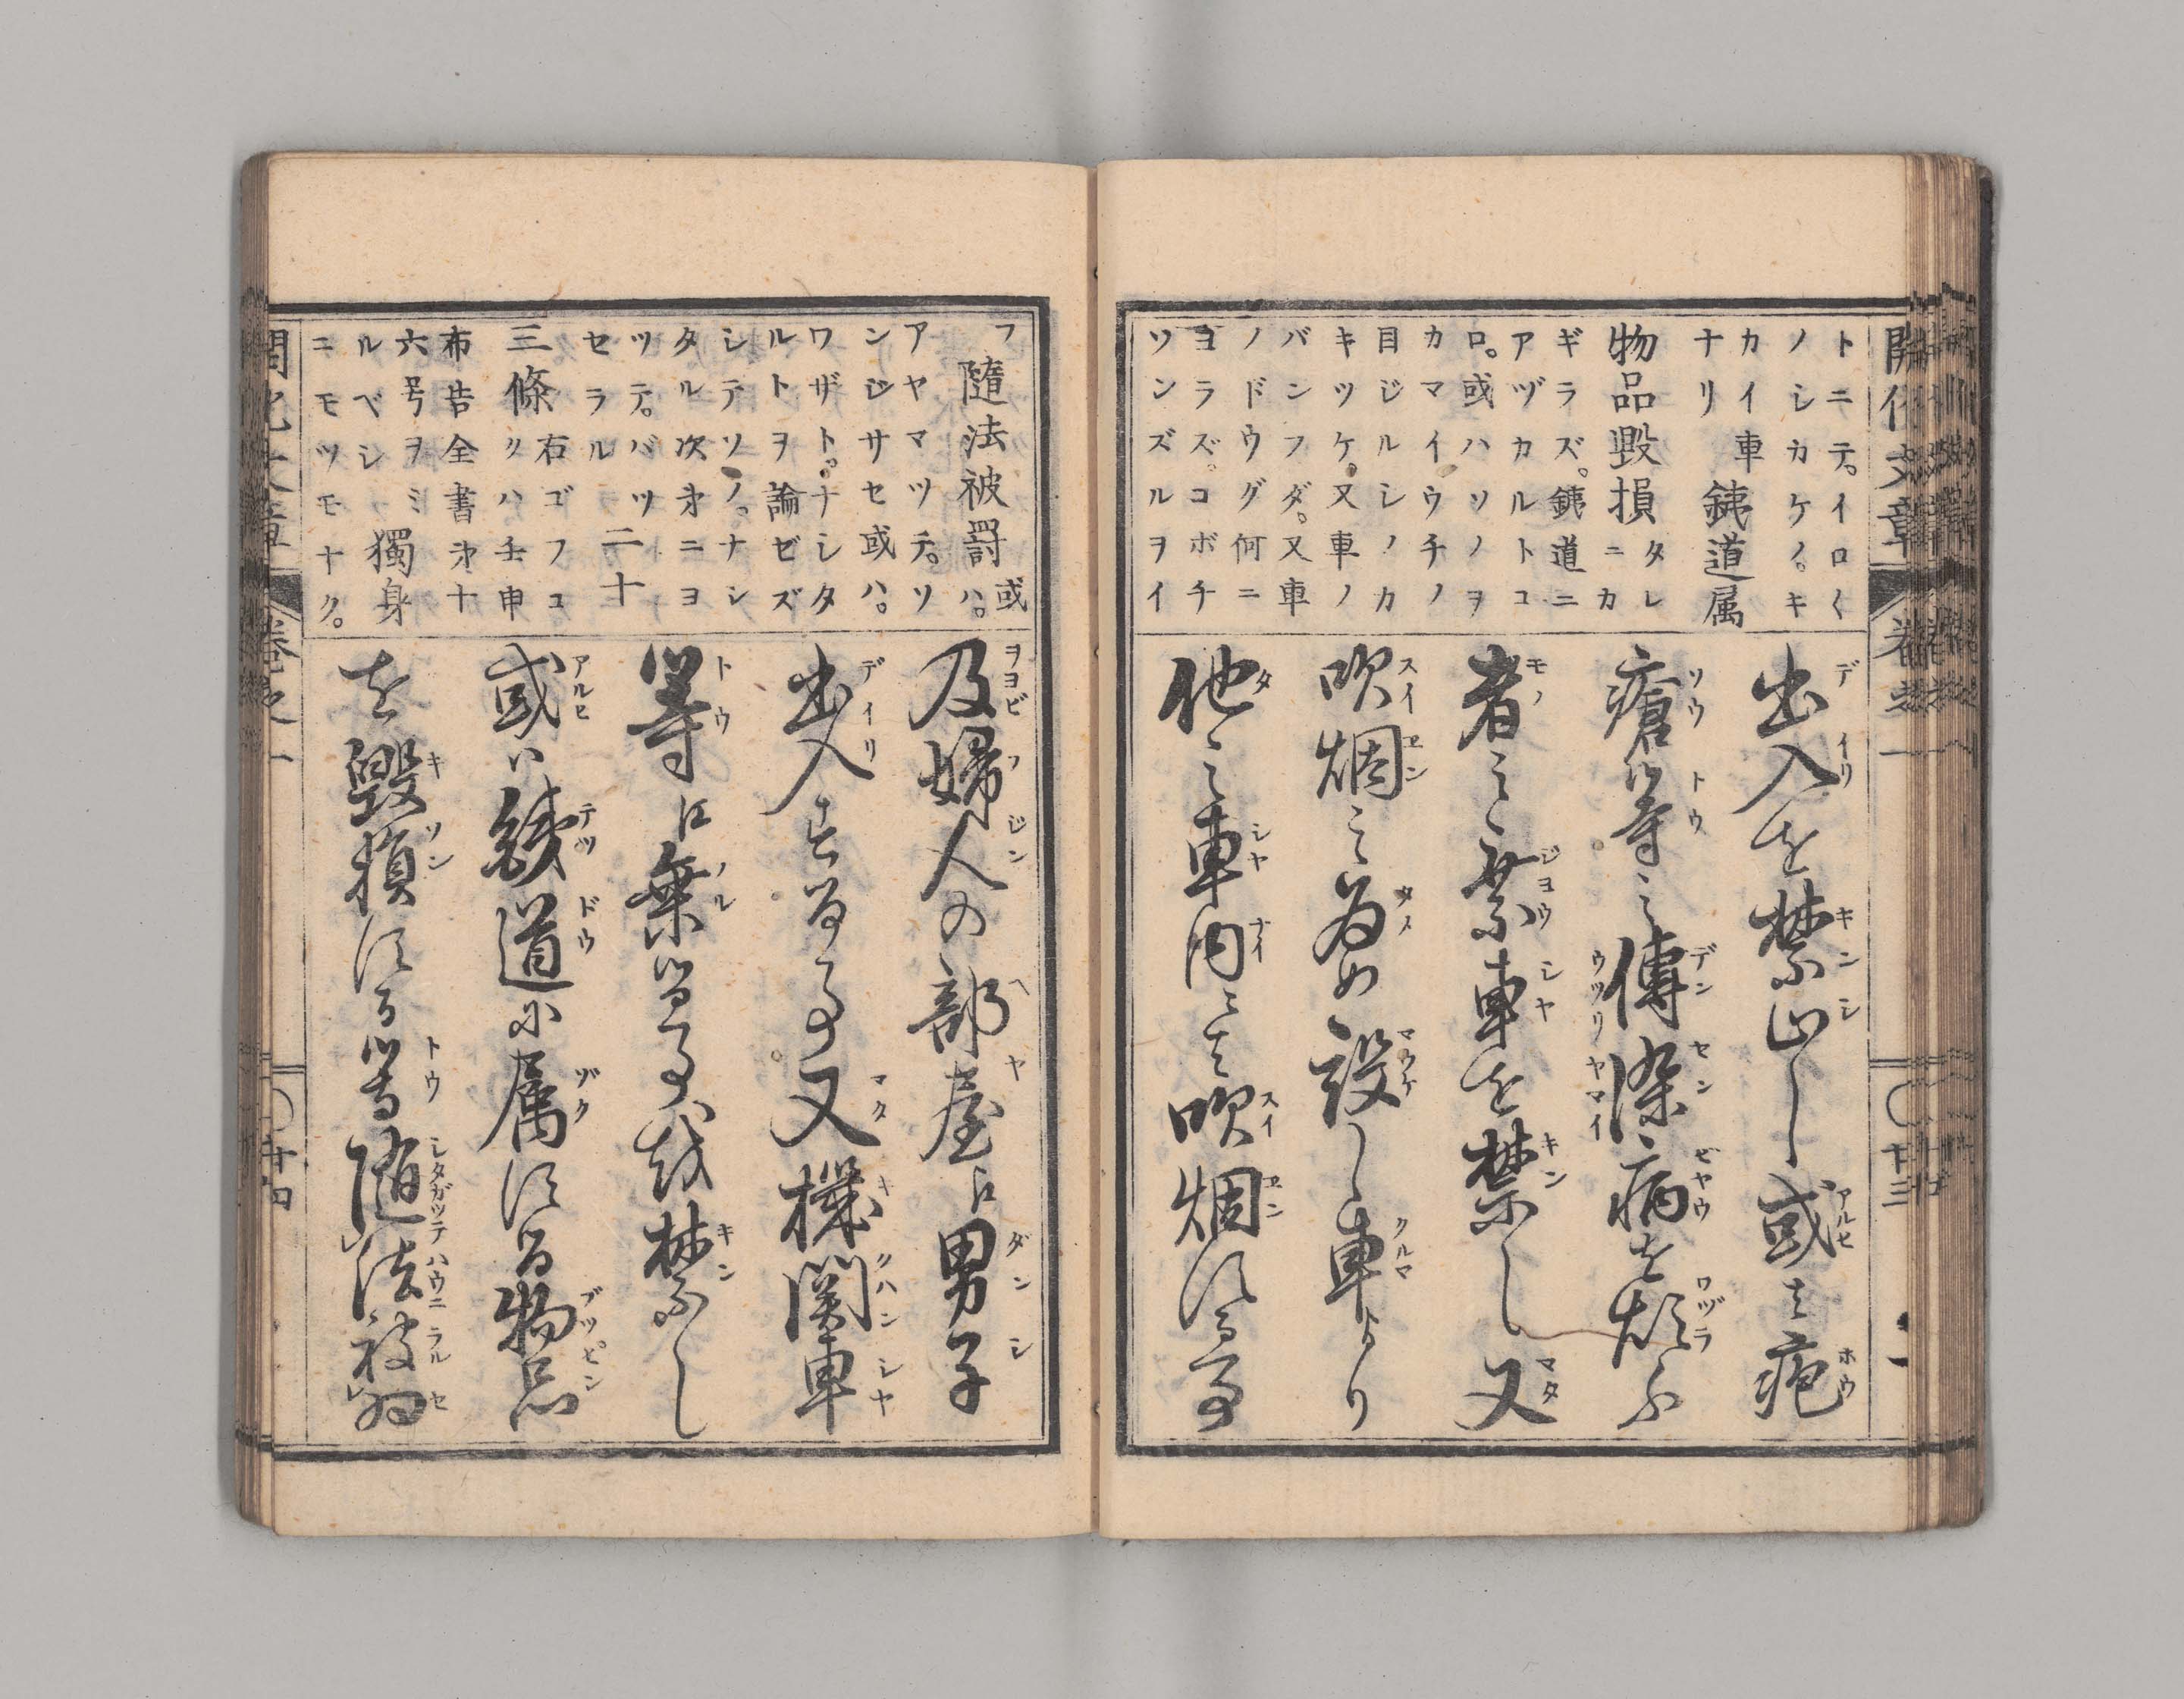 開化文章 巻之一 〇廿三
トニテ。イロ〱
ノシカケノ。キ
カイ車 鉄道属
ナリ
物品毀損 タレ
ニカ
ギラズ。鉄道ニ
アヅカルトコ
ロ。或ハソノヲ
カマイウチノ
目ジルシノカ
キツケ。又車ノ
バンフダ。又車
ノドウグ何ニ
ヨラズ。コボチ
ソンズルヲイ
出入を禁止し或は疱
瘡等之傳染病を煩ふ
者之乗車を禁し又
吹烟之為め設し車より
他之車内にて吹烟する事
フ 隨法被罰 或ハ。
アヤマツテ。ソ
ンジサセ或ハ。
ワザト。ナシタ
ルトヲ論ゼズ
シテソノ。ナシ
タル次第ニヨ
ツテ。バツ
セラル 二十
三條 右ゴフコ
クハ壬申
布告全書第十
六号ヲミ
ルベシ 獨身
ニモツモナク。
及婦人の部屋江男子
出入する事又機関車
等江乗する事を禁し
或ハ鉄道に属する物品
を毀損する等随法被罰
開化文章 巻之一 〇廿四